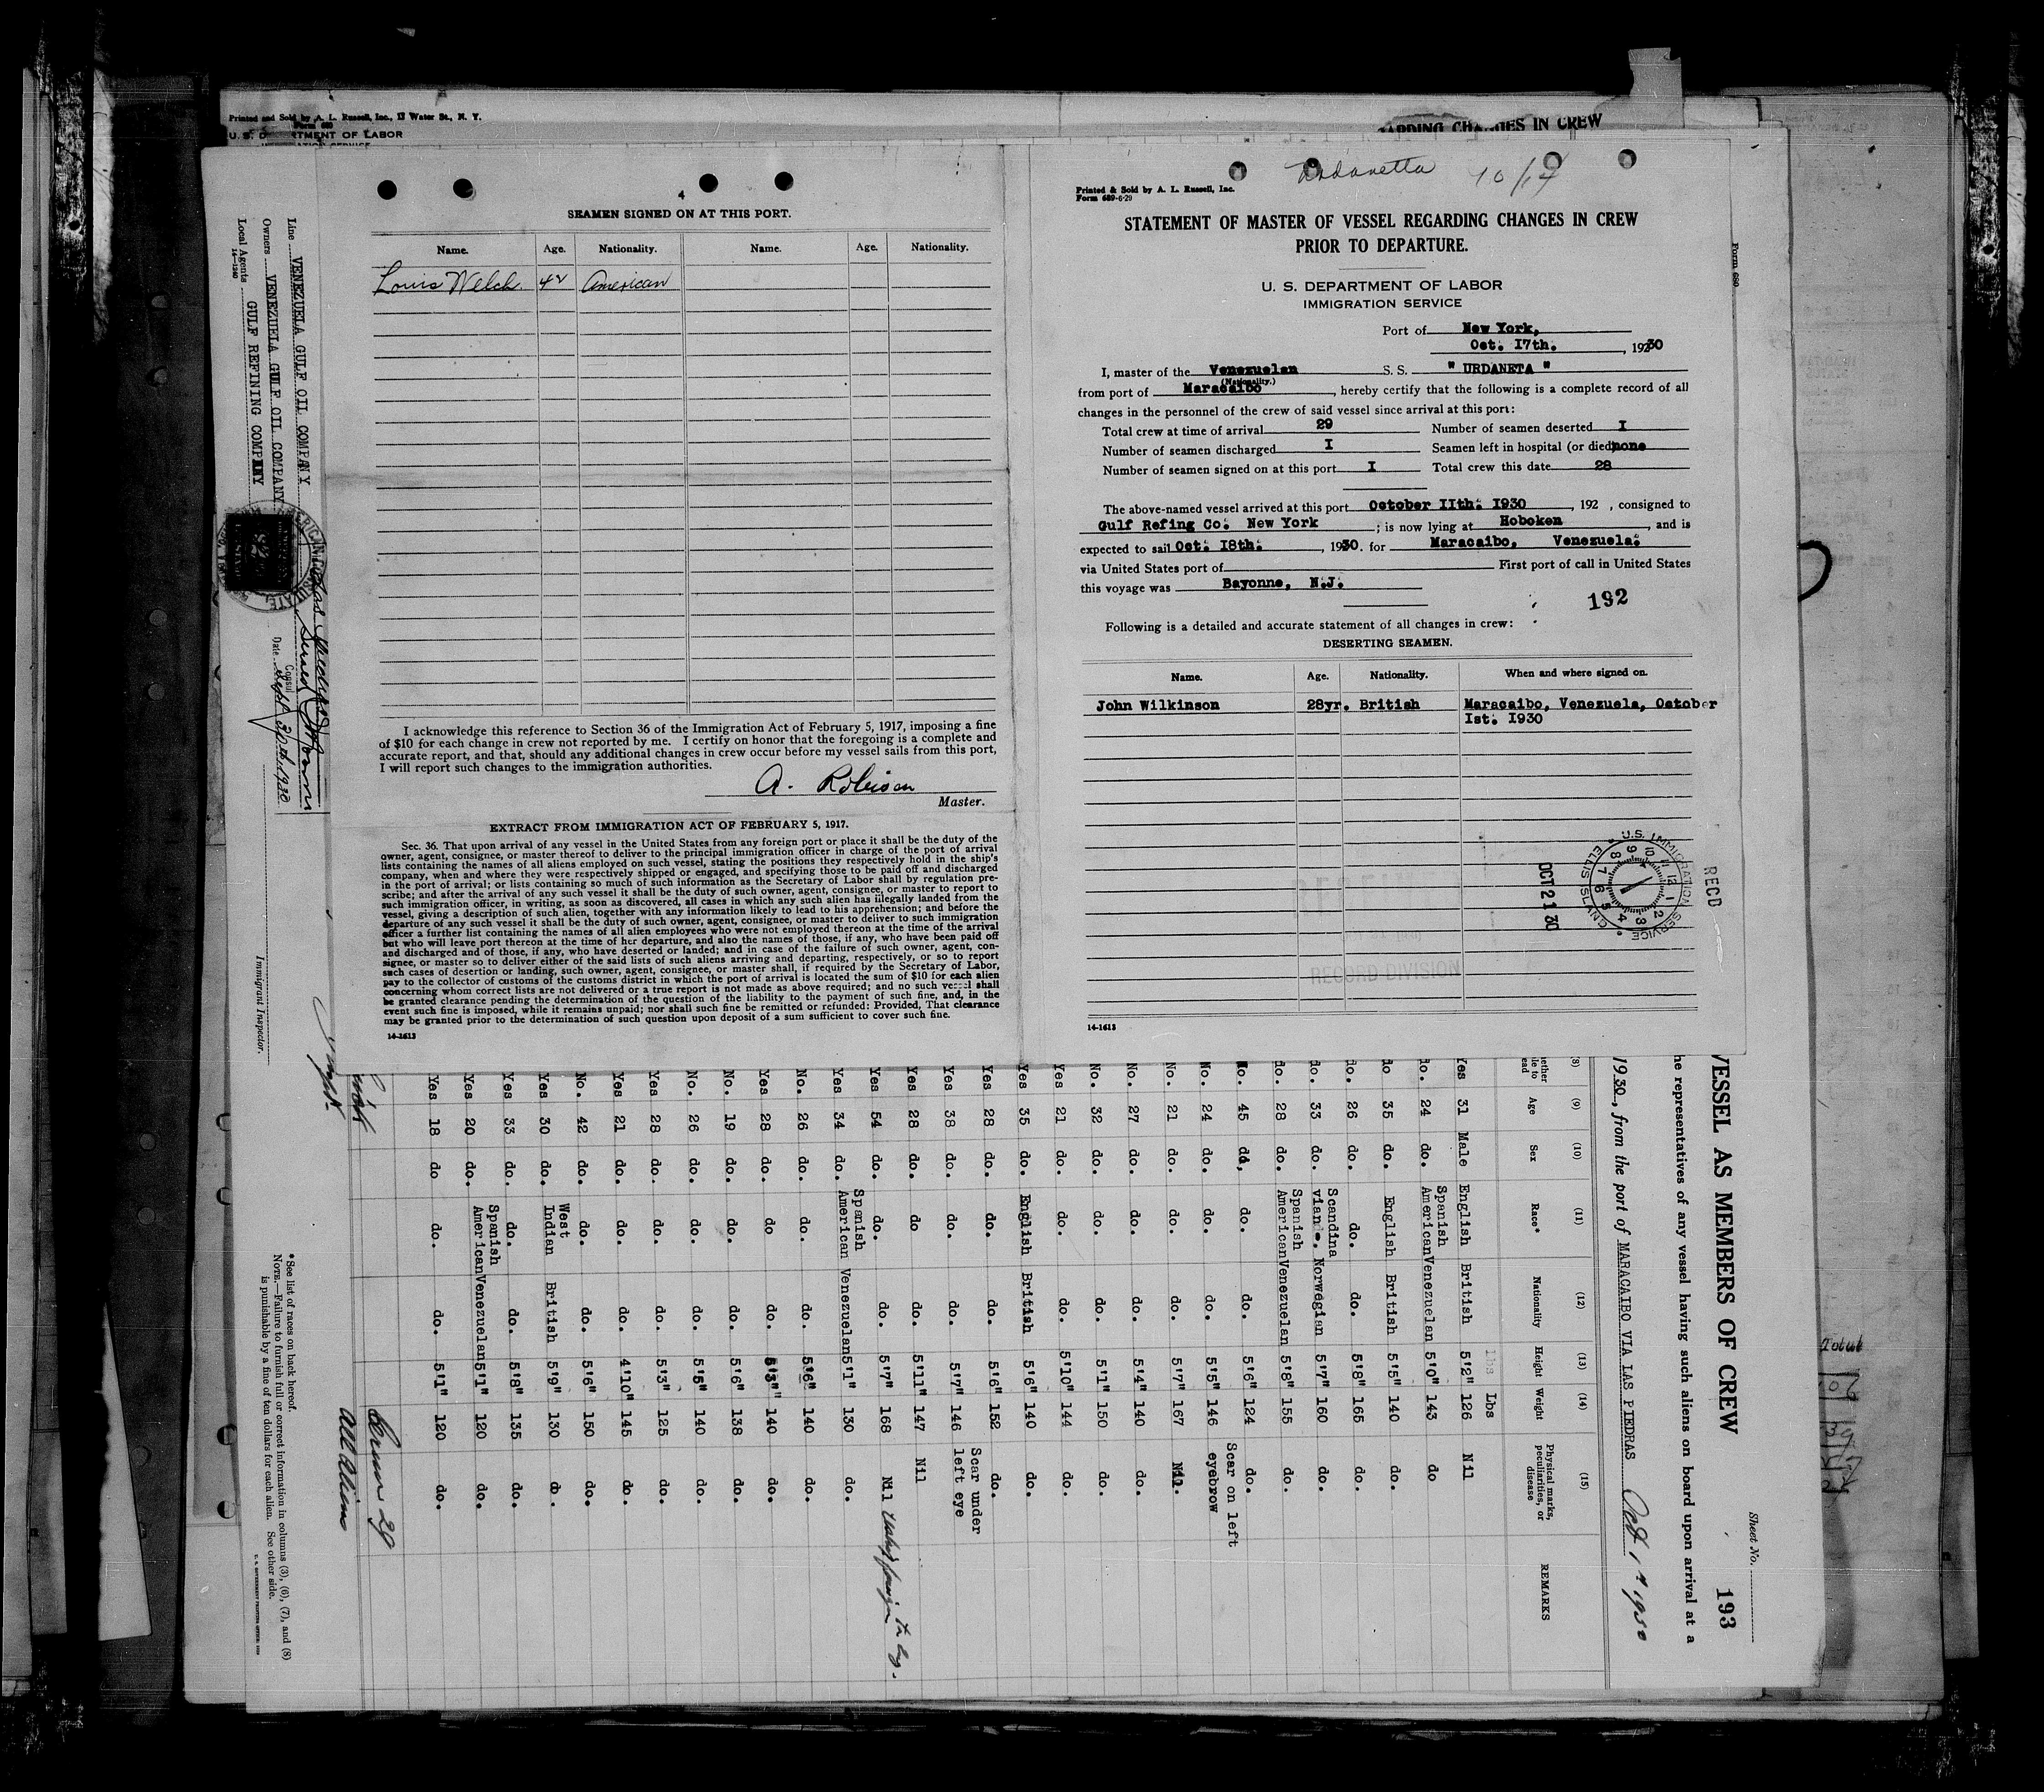 Printed and Sold by A. L. Russell, Inc., 17 Water St., N. Y.
Form 680
U. S. D RTMENT OF LABOR
ARDING CHANGES IN CREW
4
SEAMEN SIGNED ON AT THIS PORT.
Name. Age. Nationality. Name. Age. Nationality.
Louis Welch. 42 American
I acknowledge this reference to Section 36 of the Immigration Act of February 5, 1917, imposing a fine
of $10 for each change in crew not reported by me. I certify on honor that the foregoing is a complete and
accurate report, and that, should any additional changes in crew occur before my vessel sails from this port,
I will report such changes to the immigration authorities.
A. Robison
Master.
EXTRACT FROM IMMIGRATION ACT OF FEBRUARY 5, 1917.
Sec. 36. That upon arrival of any vessel in the United States from any foreign port or place it shall be the duty of the
owner, agent, consignee, or master thereof to deliver to the principal immigration officer in charge of the port of arrival
lists containing the names of all aliens employed on such vessel, stating the positions they respectively hold in the ship's
company, when and where they were respectively shipped or engaged, and specifying those to be paid off and discharged
in the port of arrival; or lists containing so much of such information as the Secretary of Labor shall by regulation pre-
scribe; and after the arrival of any such vessel it shall be the duty of such owner, agent, consignee, or master to report to
such immigration officer, in writing, as soon as discovered, all cases in which any such alien has illegally landed from the
vessel, giving a description of such alien, together with any information likely to lead to his apprehension; and before the
departure of any such vessel it shall be the duty of such owner, agent, consignee, or master to deliver to such immigration
officer a further list containing the names of all alien employees who were not employed thereon at the time of the arrival
but who will leave port thereon at the time of her departure, and also the names of those, if any, who have been paid off
and discharged and of those, if any, who have deserted or landed; and in case of the failure of such owner, agent, con-
signee, or master so to deliver either of the said lists of such aliens arriving and departing, respectively, or so to report
such cases of desertion or landing, such owner, agent, consignee, or master shall, if required by the Secretary of Labor,
pay to the collector of customs of the customs district in which the port of arrival is located the sum of $10 for each alien
concerning whom correct lists are not delivered or a true report is not made as above required; and no such vessel shall
be granted clearance pending the determination of the question of the liability to the payment of such fine, and, in the
event such fine is imposed, while it remains unpaid; nor shall such fine be remitted or refunded: Provided, That clearance
may be granted prior to the determination of such question upon deposit of a sum sufficient to cover such fine.
14-1613
Urdanetta 10/17
Printed & Sold by A. L. Russell, Inc.
Form 689-6-29
STATEMENT OF MASTER OF VESSEL REGARDING CHANGES IN CREW
PRIOR TO DEPARTURE.
Form 680
U. S. DEPARTMENT OF LABOR
IMMIGRATION SERVICE
Port of New York,
Oct. 17th. , 19230
I, master of the Venezuelan S. S. " URDANETA "
(Nationality.)
from port of Maracaibo , hereby certify that the following is a complete record of all
changes in the personnel of the crew of said vessel since arrival at this port:
Total crew at time of arrival 29 Number of seamen deserted I
Number of seamen discharged I Seamen left in hospital (or died) none
Number of seamen signed on at this port I Total crew this date 28
The above-named vessel arrived at this port October IIth. I930 , 192 , consigned to
Gulf Refing Co. New York ; is now lying at Hoboken , and is
expected to sail Oct. I8th. , 1930. for Maracaibo, Venezuela.
via United States port of First port of call in United States
this voyage was Bayonne, N.J.
192
Following is a detailed and accurate statement of all changes in crew:
DESERTING SEAMEN.
Name. Age. Nationality. When and where signed on.
John Wilkinson 28yr. British Maracaibo, Venezuela, October
Ist. I930
RECD
U.S. IMMIGRATION SERVICE ELLIS ISLAND
OCT 21 30
RECORD DIVISION
14-1613
Line VENEZUELA GULF OIL COMPANY
Owners VENEZUELA GULF OIL COMPANY
Local Agents GULF REFINING COMPANY
14-1240
Consul
Date Sept 30th 1930
Immigrant Inspector.
Sheet No.
193
VESSEL AS MEMBERS OF CREW
he representatives of any vessel having such aliens on board upon arrival at a
1930, from the port of MARACAIBO VIA LAS PIEDRAS Oct 1st 1930
(8) (9) (10) (11) (12) (13) (14) (15)
Age Sex Race* Nationality Height Weight Physical marks, peculiarities, or disease REMARKS
Lbs
Yes 31 Male English British 5'2" 126 Nil
do. 24 do. Spanish American Venezuelan 5'0" 143 do
do 35 do. English British 5'5" 140 do.
do. 26 do. do. do. 5'8" 165 do.
do. 33 do. Scandinavian. Norwegian 5'7" 160 do.
do. 28 do. Spanish American Venezuelan 5'8" 155 do.
No. 45 do, do. do. 5'6" 124 do.
No. 24 do. do. do. 5'5" 146 Scar on left eyebrow
No. 21 do. do. do. 5'7" 167 Nil.
No. 27 do. do. do. 5'4" 140 do.
No. 32 do. do. do. 5'1" 150 do.
Yes 21 do. do. do. 5'10" 144 do.
Yes 35 do. English British 5'6" 140 do.
Yes 28 do. do. do. 5'6" 152 do.
Yes 38 do. do. do. 5'7" 146 Scar under left eye
Yes 28 do. do do. 5'11" 147 Nil
Yes 54 do. do. do. 5'7" 168 Nil
Yes 34 do. Spanish American Venezuelan 5'1" 130 do.
No. 26 do. do. do. 5'6" 140 do.
Yes 28 do. do do. 5'3" 140 do.
No. 19 do. do. do. 5'6" 138 do.
No. 26 do. do. do. 5'5" 140 do.
Yes 28 do. do. do. 5'3" 125 do.
Yes 21 do. do. do. 4'10" 145 do.
No. 42 do. do. do. 5'6" 150 do.
Yes 30 do. West Indian British 5'9" 130 do.
Yes 33 do. do. do. 5'8" 135 do.
Yes 20 do. Spanish American Venezuelan 5'1" 120 do.
Yes 18 do do. do. 5'1" 120 do.
All Aliens
*See list of races on back hereof.
NOTE.—Failure to furnish full or correct information in columns (3), (6), (7), and (8)
is punishable by a fine of ten dollars for each alien. See other side.
Total